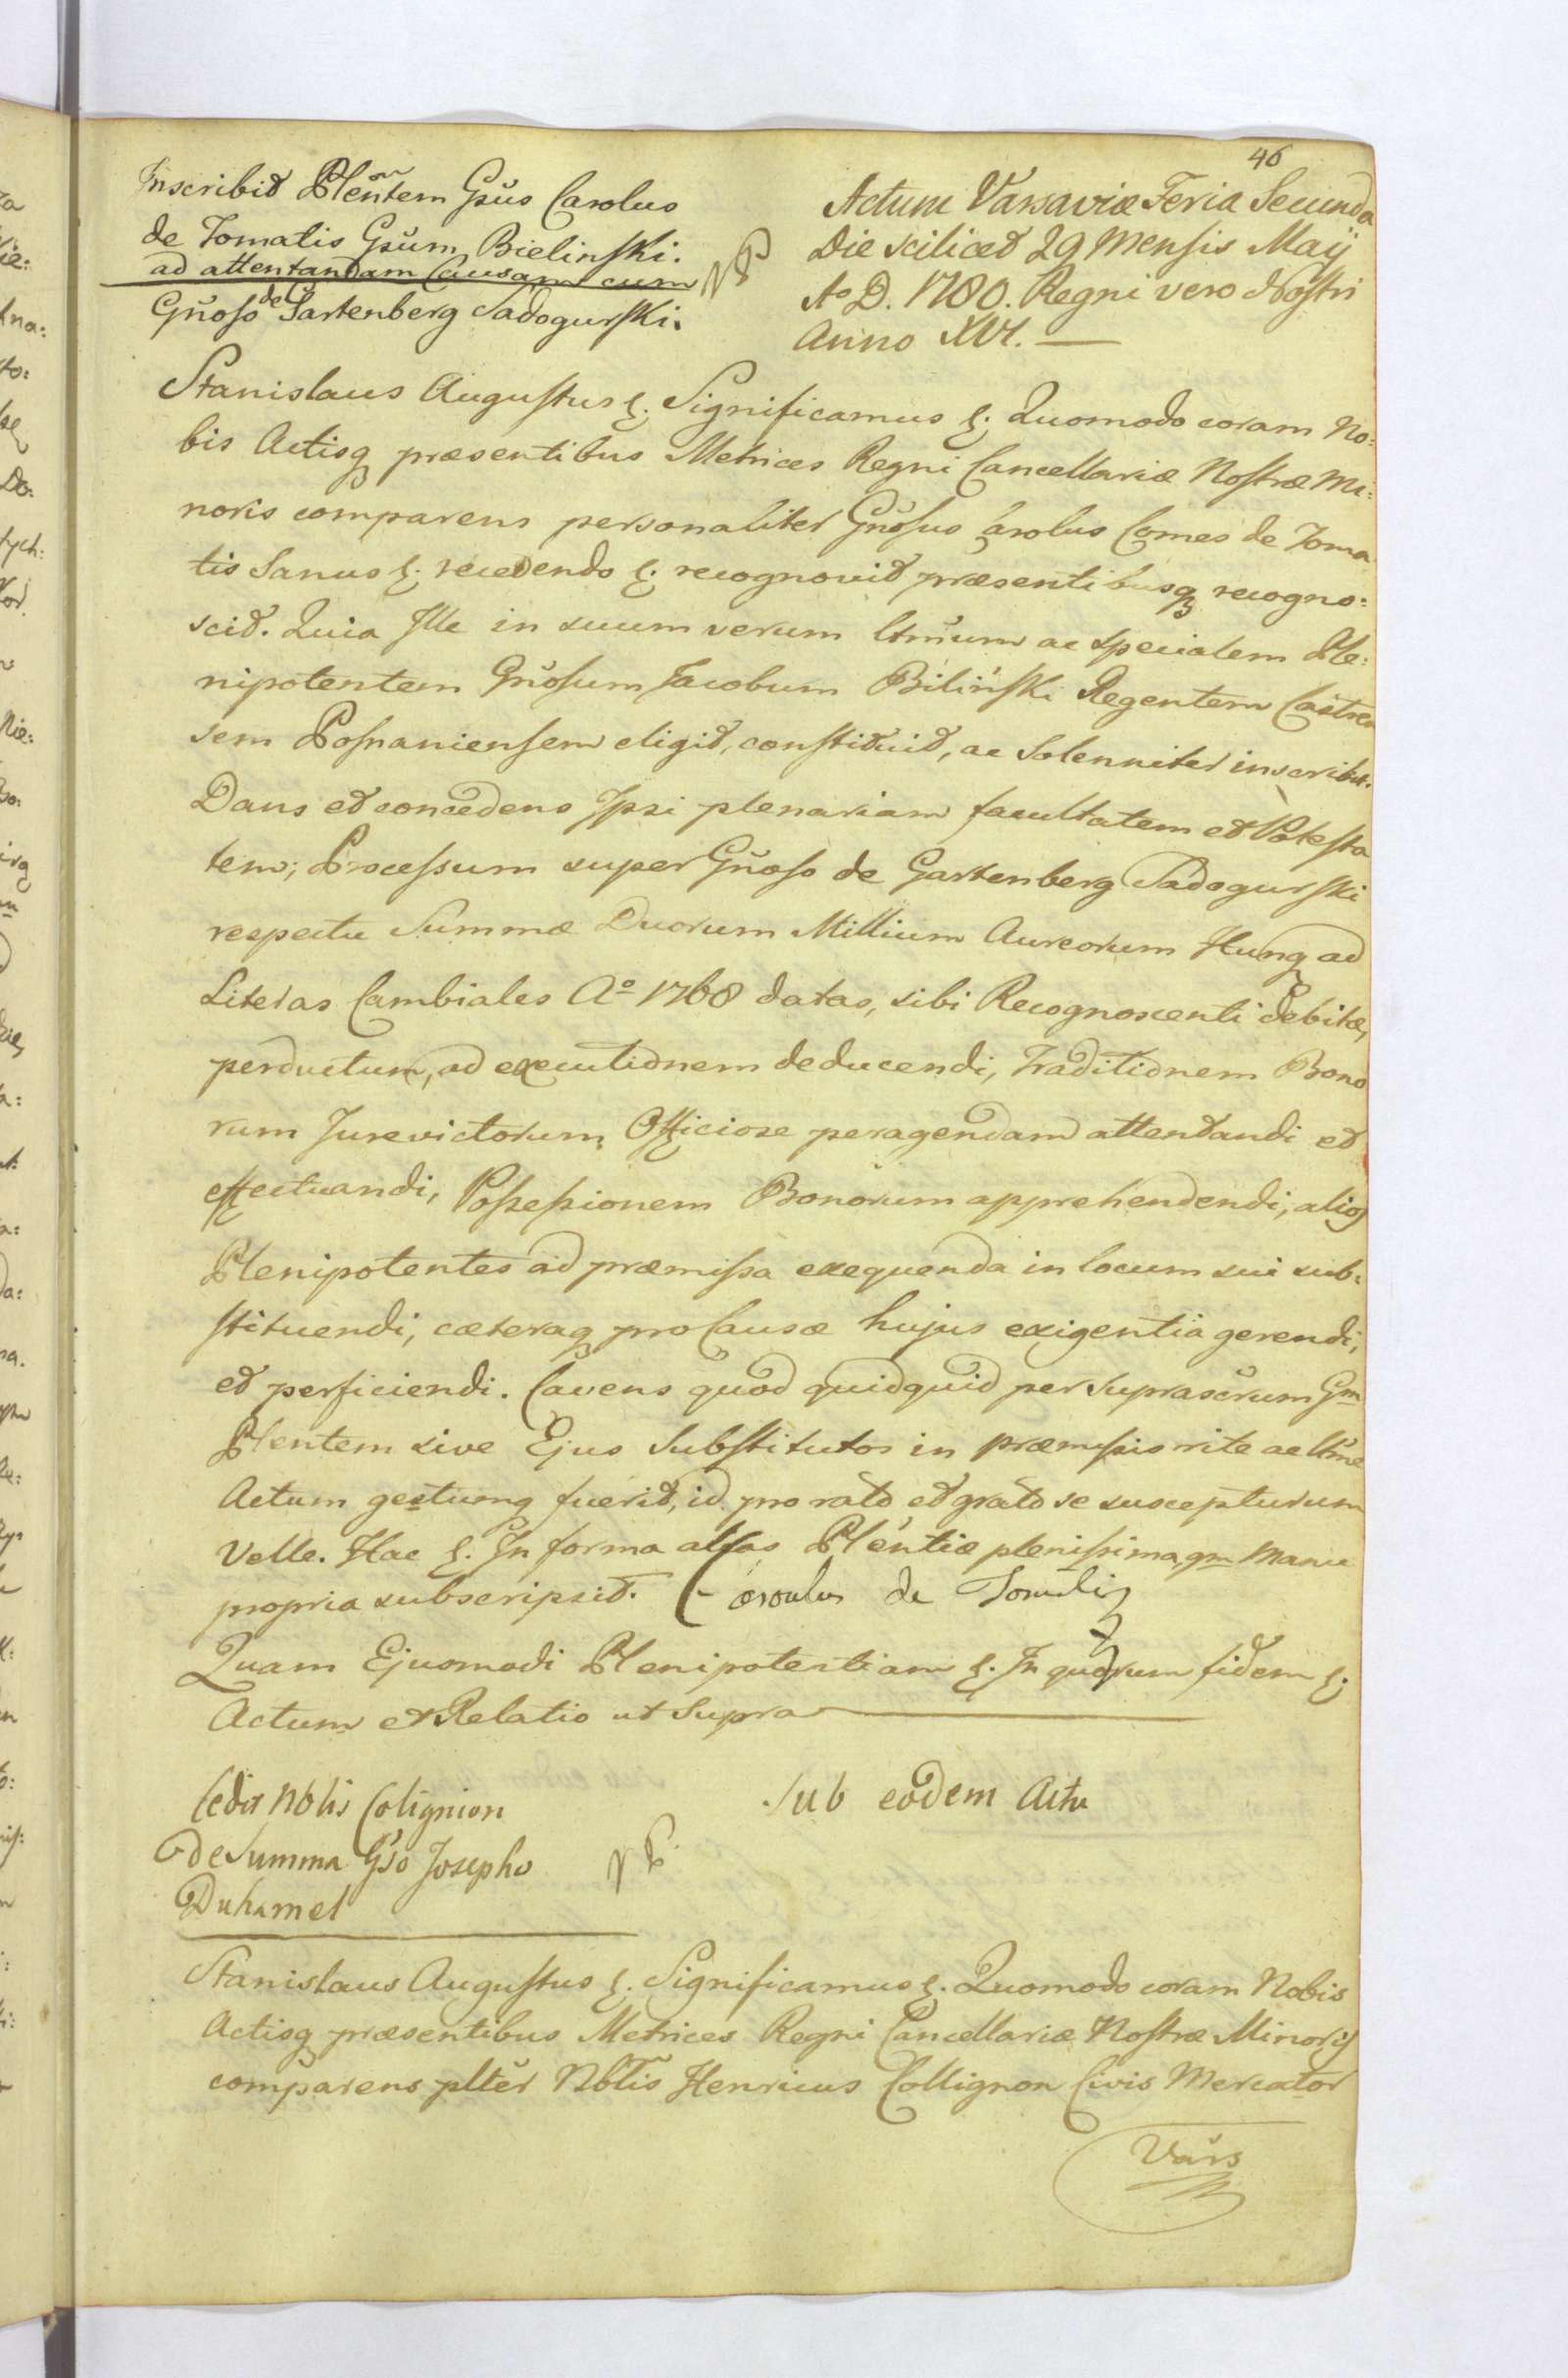 46
Inscribit Plentem Gsus Carolus
de Tomatis Gsum Bielinski.
ad attentandam Causam cum
Gnoso de Gartenberg Sadogurski.
Actum Varsaviæ Feria Secunda
Die scilicet 29 Mensis Maij
Ao D. 1780. Regni vero Nostri
Anno XVI.
Stanislaus Augustus &. Significamus &. Quomodo coram No:
bis Actisq præsentibus Metrices Regni Cancellariæ Nostræ Mi:
noris comparens personaliter Gnosus Carolus Comes de Toma
tis Sanus &. recedendo &. recognovit præsentibusq recogno:
scit. Quia Ille in suum verum ltmum ac specialem Ple:
nipotentem Gnosum Jacobum Biliński Regentem Castren
sem Posnaniensem eligit, constituit, ac Solenniter inscribit.
Dans et concedens Ipsi plenariam facultatem et Potesta
tem; Processum super Gnoso de Gartenberg Sadogurski
respectu Summæ Duorum Millium Aureorum Hung ad
Literas Cambiales Ao 1768 datas, sibi Recognoscenti debitæ,
perductum, ad executionem deducendi, Traditionem Bono
rum Jurevictorum Officiose peragendam attentandi et
effectuandi, Possessionem Bonorum apprehendendi, alios
Plenipotentes ad præmissa exequenda in locum sui sub:
stituendi, cæteraq pro Causæ hujus exigentia gerendi,
et perficiendi. Cavens quod quidquid per Suprascrum Gm
Plentem sive Ejus Substitutos in præmissis rite ac ltme
Actum gestumq fuerit, id pro rato et grato se suscepturum
Velle. Hac &. In forma alias Plentiæ plenissima, qm Manu
propria subscripsit. Carolus de Tomatis
Quam Ejusmodi Plenipotentiam &. In quorum fidem &;
Actum et Relatio ut Supra
Cedit Nblis Colignion
de Summa Gso Josepho
Duhamel
Sub eodem Actu
Stanislaus Augustus &. Significamus &. Quomodo coram Nobis
Actisq præsentibus Metrices Regni Cancellariæ Nostræ Minoris
comparens plter Nblis Henricus Collignon Civis Mercator
Vars